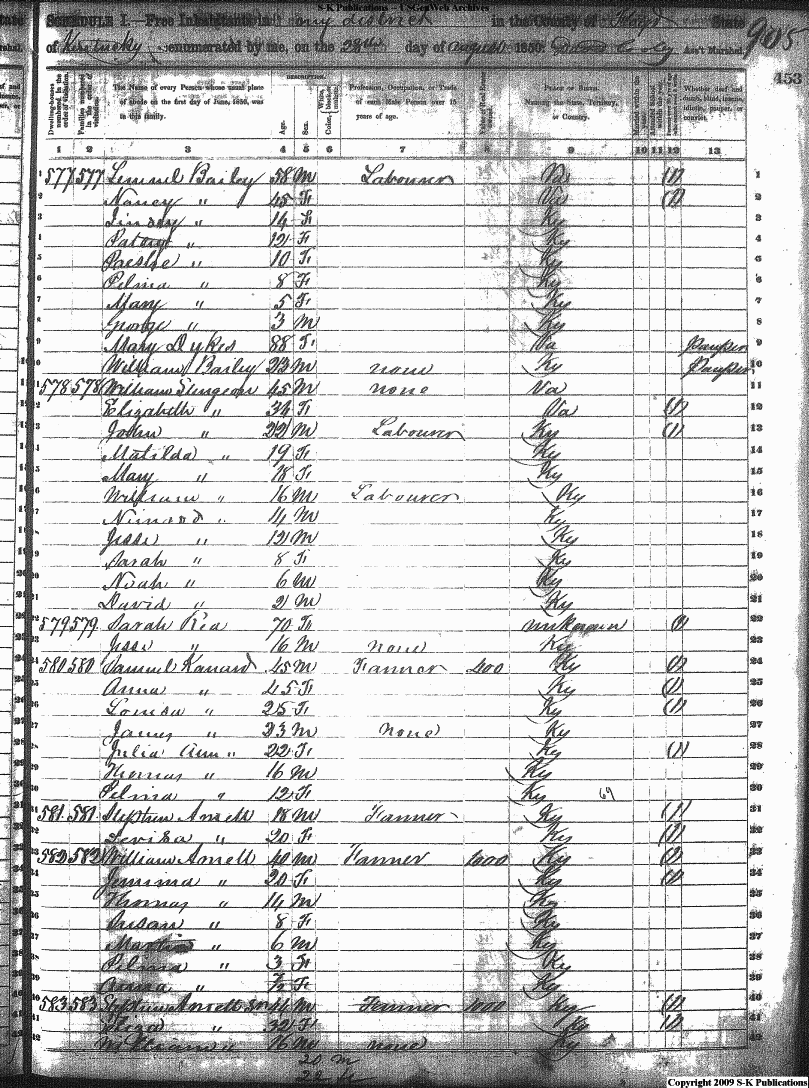 S-K Publications - USGenWeb Archives
SCHEDULE I.—Free Inhabitants in any district in the County of Floyd State
of Kentucky enumerated by me, on the 28th day of August 1850. Cooley Ass't Marshal. 905
453
DESCRIPTION.
Dwelling-houses numbered in the order of visitation.
Families numbered in the order of visitation.
The Name of every Person whose usual place of abode on the first day of June, 1850, was in this family.
Age.
Sex.
Profession, Occupation, or Trade of each Male Person over 15 years of age.
Value of Real Estate
PLACE OF BIRTH. Naming the State, Territory, or Country.
Whether deaf and dumb, blind, insane, idiotic, pauper, or convict.
1 2 3 4 5 6 7 8 9 10 11 12 13
1 577 577 Lemuel Bailey 58 M Labourer (1) 1
2 Nancy " 45 F Va (1) 2
3 14 F Ky 3
4 12 F Ky 4
5 " 10 F Ky 5
6 Pelina " 8 F Ky 6
7 Mary " 5 F Ky 7
8 George " 3 M Ky 8
9 Mary Dykes 88 F Va Pauper 9
10 William Bailey 23 M none Ky Pauper 10
11 578 578 William 45 M none Va 11
12 Elizabeth " 34 F Va (1) 12
13 John " 22 M Labourer Ky (1) 13
14 Matilda " 19 F Ky 14
15 Mary " 18 F Ky 15
16 William " 16 M Labourer Ky 16
17 " 14 M Ky 17
18 Jesse " 12 M Ky 18
19 Sarah " 8 F Ky 19
20 Noah " 6 M Ky 20
21 David " 2 M Ky 21
22 579 579 Sarah Rea 70 F unknown 22
23 Jesse " 16 M none Ky 23
24 580 580 Samuel 45 M Farmer 400 Ky (1) 24
25 Anna " 45 F Ky (1) 25
26 Louisa " 25 F Ky (1) 26
27 James " 23 M none Ky 27
28 Julia Ann " 22 F Ky (1) 28
29 Thomas " 16 M Ky 29
30 Pelina " 12 F Ky 69 30
31 581 581 Stephen Arnett 18 M Farmer Ky (1) 31
32 Leviza " 20 F Ky (1) 32
33 582 582 William Arnett 40 M Farmer 1000 Ky (1) 33
34 Jemima " 20 F Ky (1) 34
35 Thomas " 14 M Ky 35
36 Susan " 8 F Ky 36
37 " 6 M Ky 37
38 Pelina " 3 F Ky 38
39 Anna " F Ky 39
40 583 583 Stephen Arnett M Farmer 1000 Ky (1) 40
41 Eliza " 32 F Ky (1) 41
42 William " 16 M none Ky 42
20 M
22 F
Copyright 2009 S-K Publications